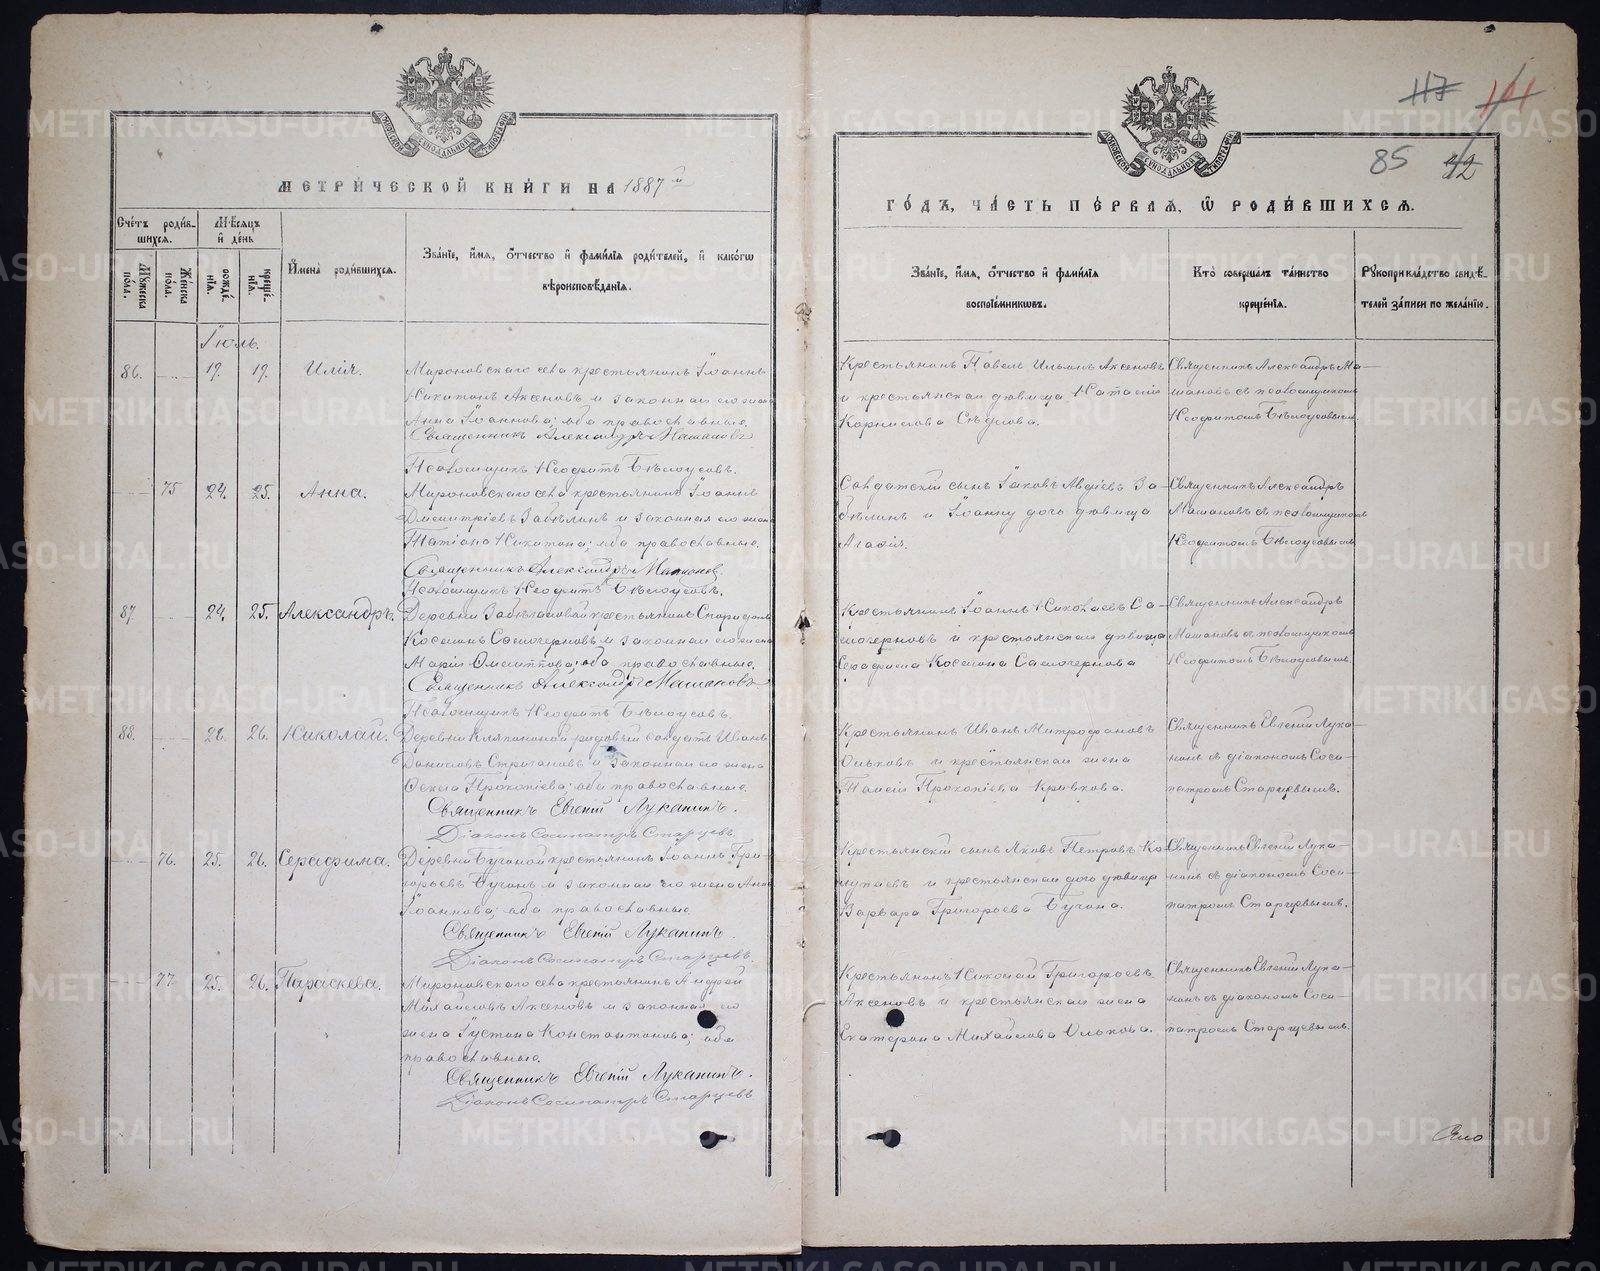 117 101
85 42
МЕТРИЧЕСКОЙ КНИГИ НА 1887й
ГОДЪ, ЧАСТЬ ПЕРВАЯ, Ѡ РОДИВШИХСЯ.
Счетъ родив-
шихся.
Мужеска пола.
Женска пола.
Мѣсяцъ и день
рожде-
нїя.
креще-
нїя.
Имена родившихся.
Званїе, имя, отчество и фамилїя родителей, и какогѡ
вѣроисповѣданїя.
Званїе, имя, отчество и фамилїя
воспрїемникωвъ.
Кто совершалъ таинство
крещенїя.
Рукоприкладство свидѣ-
телей записи по желанїю.
Іюль.
86. 19. 19. Илія.
Мироновскаго села крестьянинъ Іоаннъ
Никитинъ Аксеновъ и законная его жена
Анна Іоаннова; оба православные.
Священникъ Александръ Машановъ
Псаломщикъ Неофитъ Бѣлоусовъ.
Крестьянинъ Павелъ Ильинъ Аксеновъ
и крестьянская дѣвица
Корнилова Сѣдлова.
Священникъ Александръ Ма-
шановъ съ псаломщикомъ
Неофитомъ Бѣлоусовымъ.
75 24. 25. Анна.
Мироновскаго села крестьянинъ Іоаннъ
Димитріевъ Забѣлинъ и законная его жена
Татіана Никитина; оба православные.
Священникъ Александръ Машановъ.
Псаломщикъ Неофитъ Бѣлоусовъ.
Солдатскій сынъ Іаковъ Авдіевъ За-
бѣлинъ и дѣвица
Священникъ Александръ
Машановъ съ псаломщикомъ
Неофитомъ Бѣлоусовымъ
87. 24. 25. Александръ.
Деревни крестьянинъ Спиридонъ
Косминъ Самочерновъ и законная его жена
Марія оба православные.
Священникъ Александръ Машановъ.
Псаломщикъ Неофитъ Бѣлоусовъ.
Крестьянинъ Іоаннъ Николаевъ Са-
мочерновъ и крестьянская дѣвица
Серафима Космина Самочернова
Священникъ Александръ
Машановъ съ псаломщикомъ
Неофитомъ Бѣлоусовымъ.
88. 26. Николай.
Деревни рядовый солдатъ Иванъ
Даниловъ Стригановъ и законная его жена
Прокопіева; оба православные.
Священникъ Евгеній Луканинъ.
Діаконъ Сосипатръ Старцевъ.
Крестьянинъ Иванъ Митрофановъ
Ольковъ и крестьянская жена
Таисія Прокопіева
Священникъ Евгеній Лука-
нинъ съ діакономъ Соси-
патромъ Старцевымъ.
76. 25. 26. Серафима.
Деревни Бучиной крестьянинъ Іоаннъ Гри-
горьевъ Бучинъ и законная его жена Анна
Іоаннова; оба православные.
Священникъ Евгеній Луканинъ.
Діаконъ Сосипатръ Старцевъ.
Крестьянскій сынъ Яковъ Петровъ
и крестьянская дочь дѣвица
Варвара Григорьева Бучина.
Священникъ Евгеній Лука-
нинъ съ діакономъ Соси-
патромъ Старцевымъ.
77. 25. 26. Параскева.
Мироновскаго села крестьянинъ Андрей
Михайловъ Аксеновъ и законная его
жена Іустина Константинова; оба
православные.
Священникъ Евгеній Луканинъ.
Діаконъ Сосипатръ Старцевъ
Крестьянинъ Николай Григорьевъ
Аксеновъ и крестьянская жена
Екатерина Михайлова Олькова.
Священникъ Евгеній Лука-
нинъ съ діакономъ Соси-
патромъ Старцевымъ.
METRIKI.GASO-URAL.RU